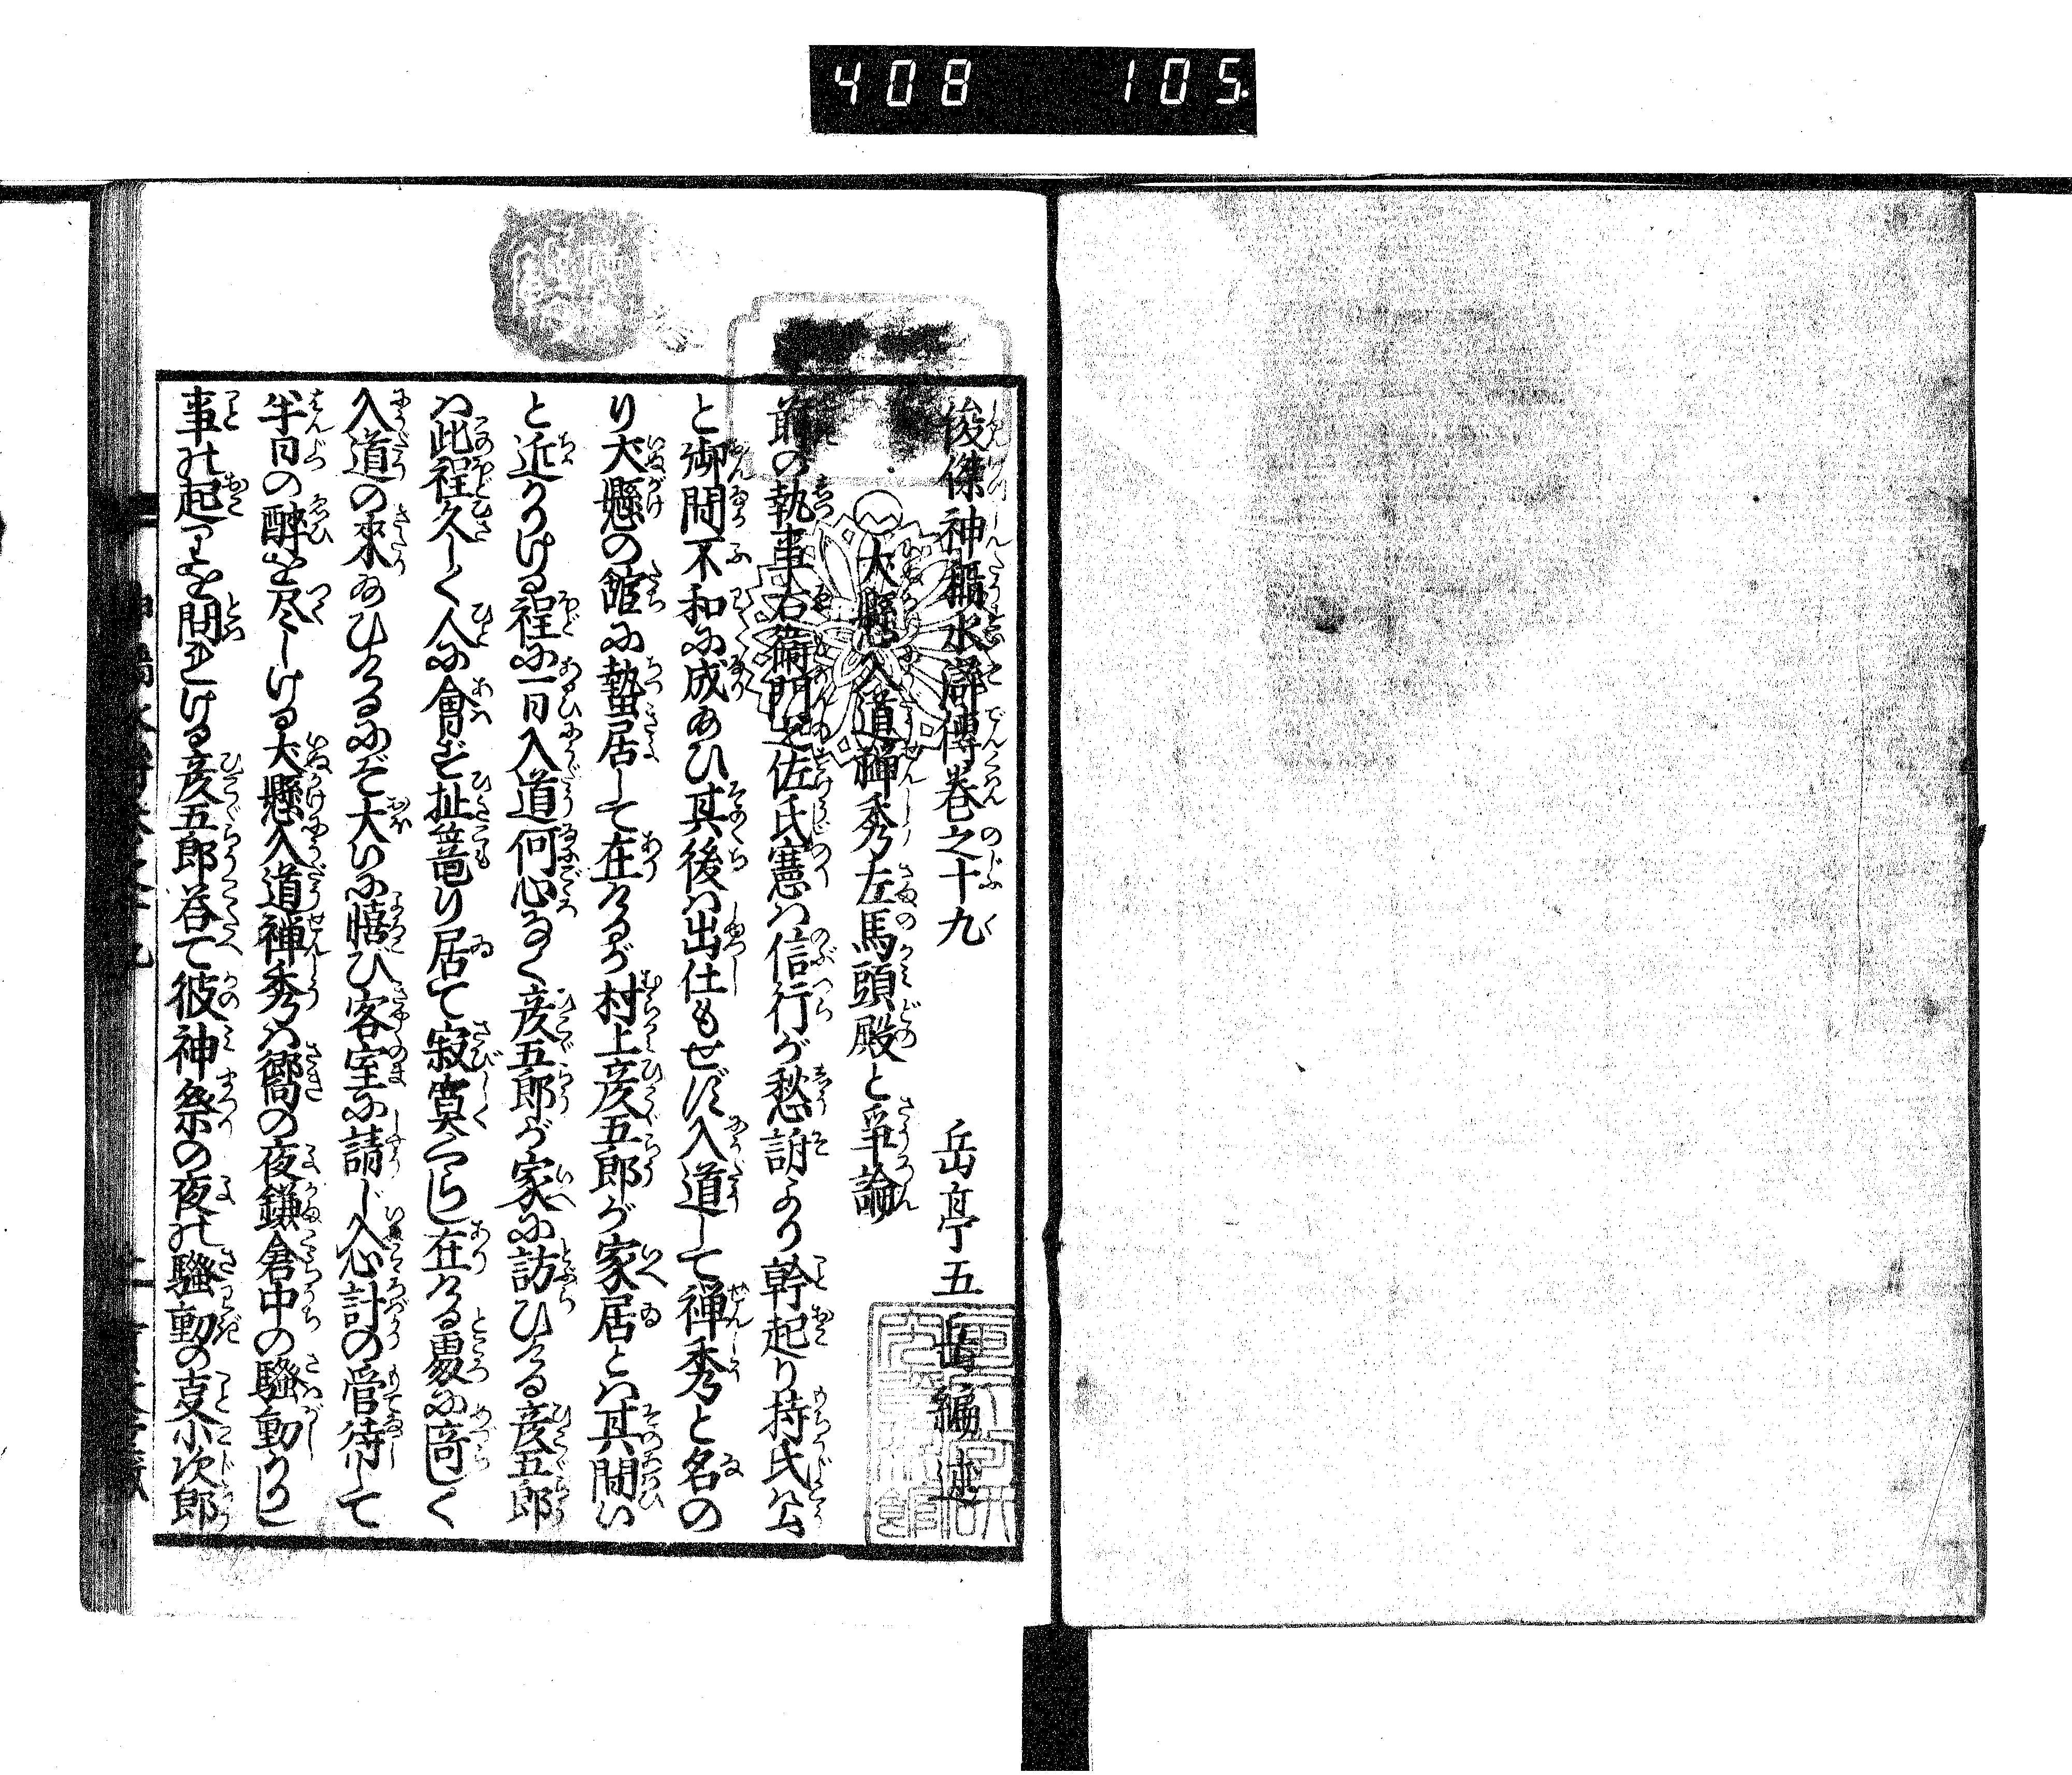 408 105
俊傑神稲水滸傳巻之十九
岳亭五岳編述
犬懸入道禅秀左馬頭殿と爭論
前の執事右衛門之佐氏憲ハ信行が愁訴より幹起り持氏公
と御間不和に成あひ其後ハ出仕もせず入道して禅秀と名の
り犬懸の舘に蟄居して在けるが村上彦五郎が家居とハ其間い
と近かりける程に一日入道何心なく彦五郎が家に訪ひける彦五郎
ハ此程久しく人に會ず扯篭り居て寂寞くらし在ける処に奇しく
入道の來あひけるにぞ大いに悟び客室に請じ入心計の管待して
半日の酔を尽しける犬懸入道禅秀ハ嚮の夜鎌倉中の騒動かりし
事の起りを問とける彦五郎答て彼神祭の夜の騒動の叓小次郎